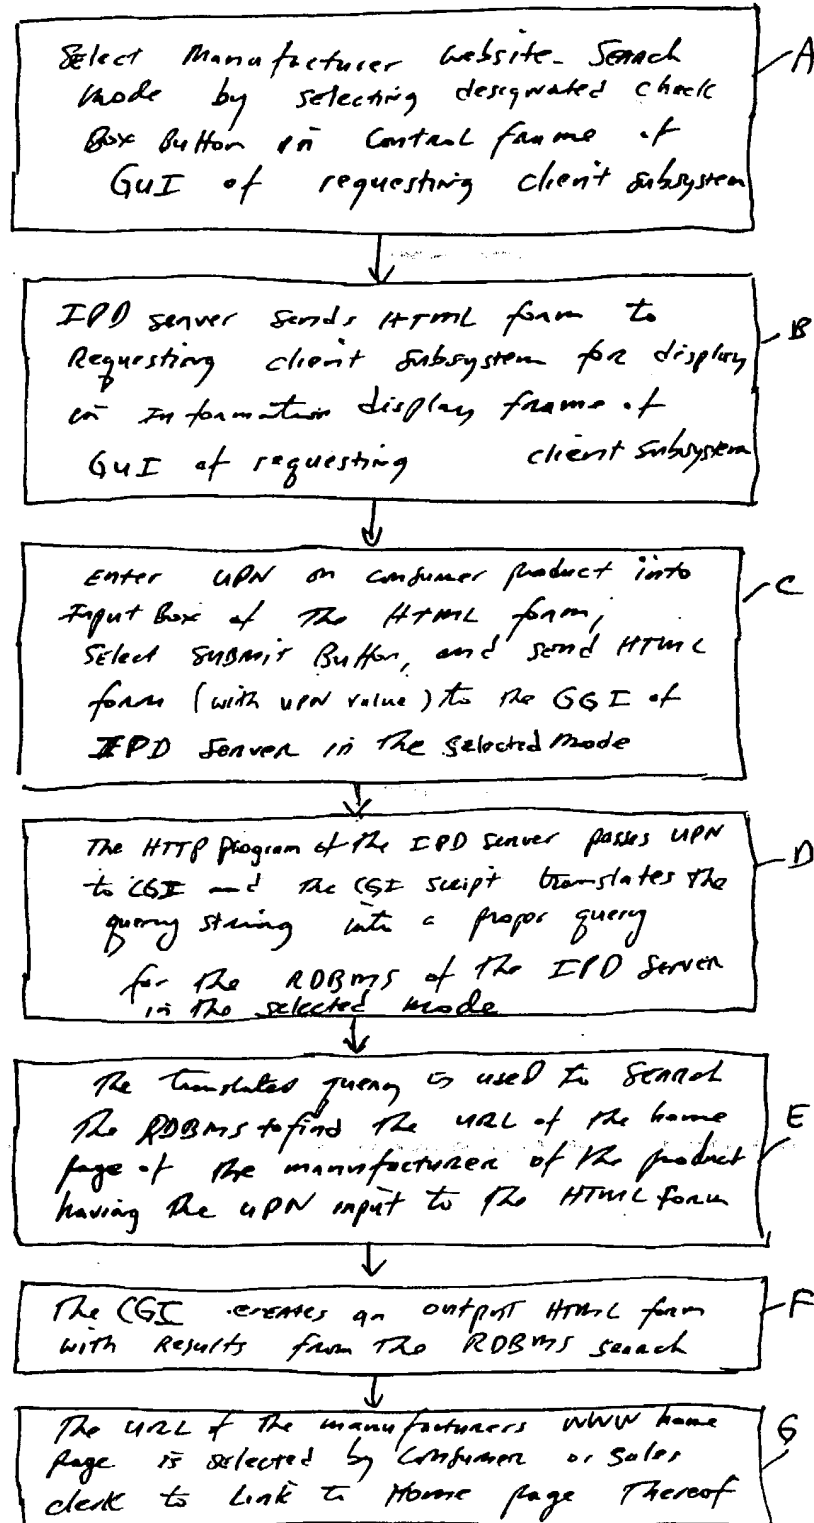 Select Manufacturer Website-Search
Mode by selecting designated check
Box Button in Control frame of
GUI of requesting client subsystem
A
IPD server sends HTML form to
Requesting client subsystem for display
in Information display frame of
GUI of requesting client subsystem
B
Enter UPN on consumer product into
Input Box of the HTML form,
Select SUBMIT Button, and send HTML
form (with UPN value) to the GGI of
IPD Server in the selected mode
C
The HTTP program of the IPD server passes UPN
to CGI and the CGI script translates the
query string into a proper query
for the RDBMS of the IPD Server
in the selected mode
D
The translated query is used to search
the RDBMS to find the URL of the home
page of the manufacturer of the product
having the UPN input to the HTML form
E
The CGI creates an output HTML form
with Results from the RDBMS search
F
The URL of the manufacturers WWW home
page is selected by Consumer or sales
clerk to Link to Home page Thereof
G